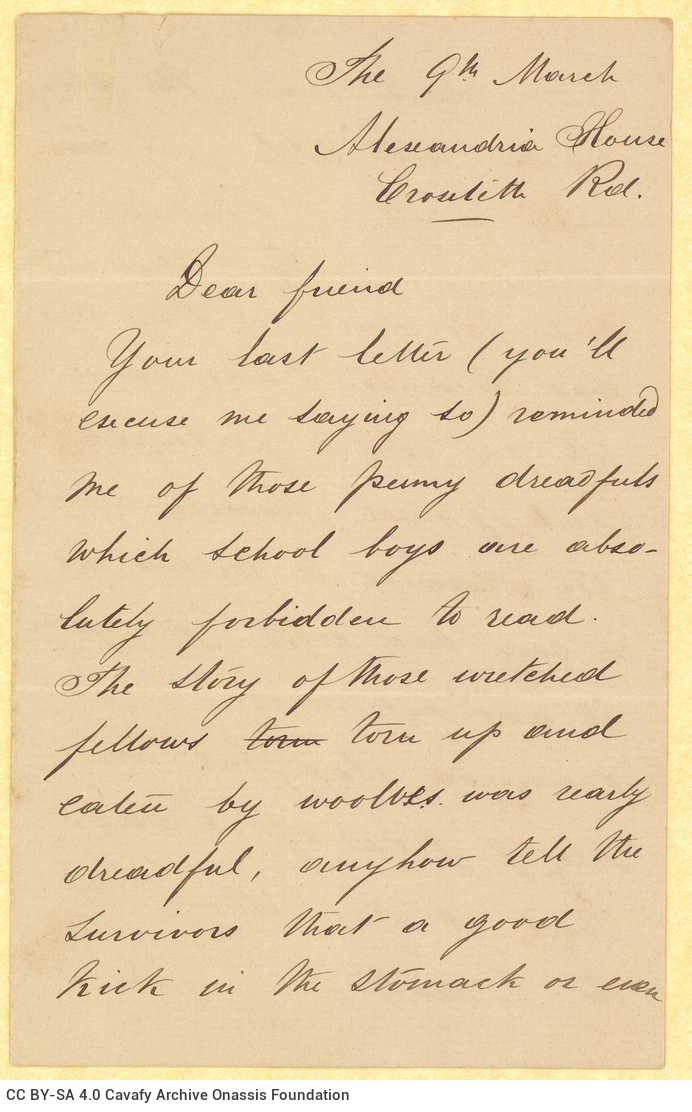 The 9th March
Alexandria House
Croxteth Rd.
Dear friend
Your last letter (you'll
excuse me saying so) reminded
me of those penny dreadfuls
which school boys are abso-
lutely forbidden to read.
The story of those wretched
fellows torn torn up and
eaten by woolves. was realy
dreadful, anyhow tell the
survivors that a good
kick in the stomack or even
CC BY-SA 4.0 Cavafy Archive Onassis Foundation